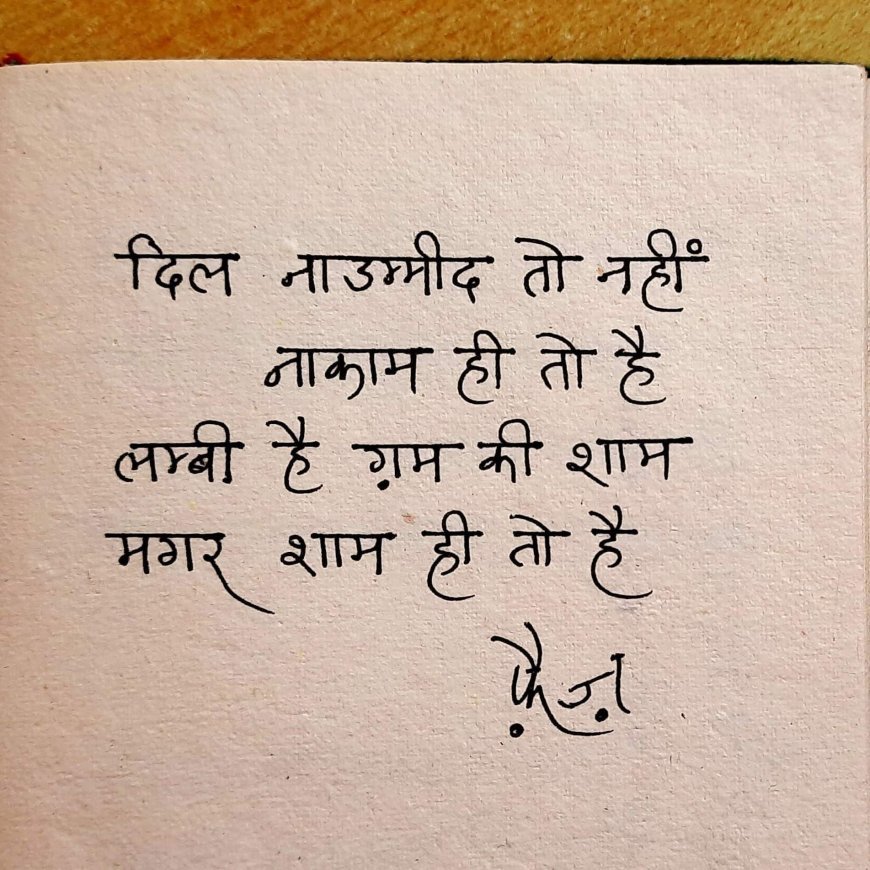 दिल नाउम्मीद तो नहीं
नाकाम ही तो है
लम्बी है ग़म की शाम
मगर शाम ही तो है
फ़ैज़